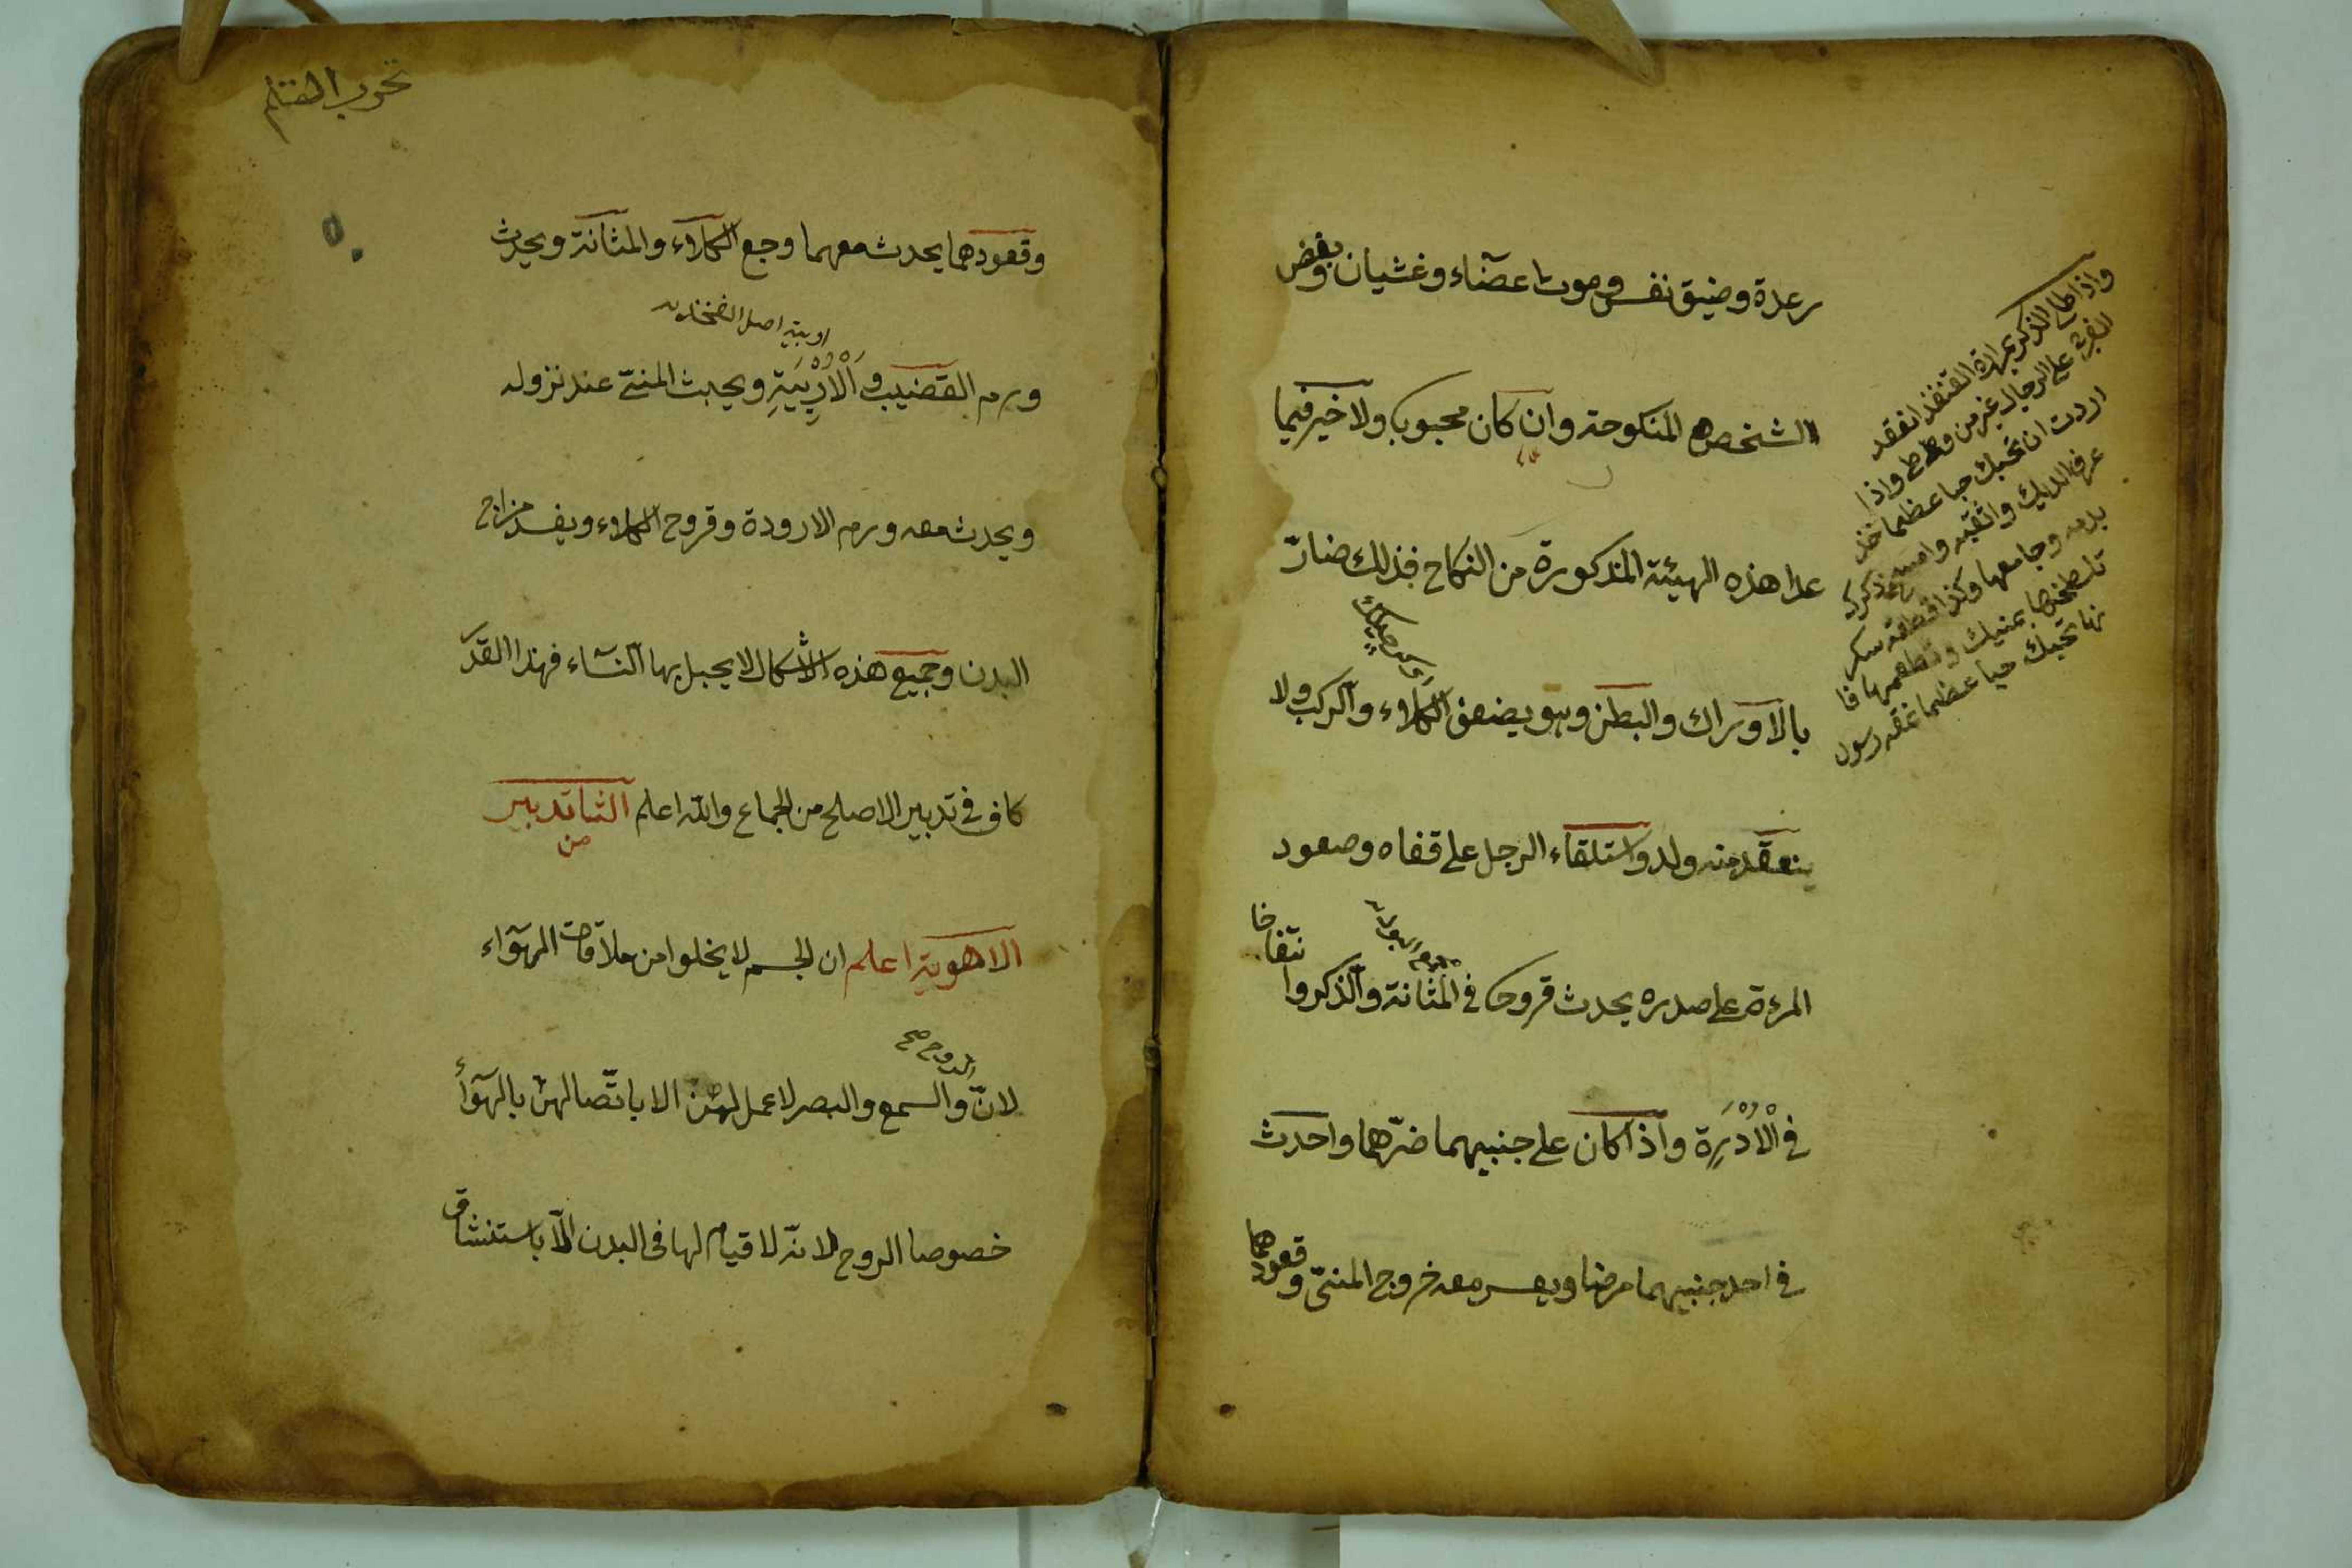 رعدة وضيق نفس وموت اعضآء وغشيان وبغض
الشخص المنكوحة وان كان محبوبا ولا خير فيما
عدا هذه الهيئة المذكورة من النكاح فذلك ضارّ
بالاوراك والبطن وهو يضعف الكلاء والركب ولا
ينعقد منه ولد واستلقاء الرجل على قفاه وصعود
المرءة على صدره يحدث قروحا في المثانة والذكر وا
نتفاخا
في الْاُدْرَة واذا كان على جنبيهما ضرّهما واحدث
في احد جنبيهما مرضا ويعسر معه خروج المنيّ وقعودهما
واذا طلا الذكر بمرارة القنفذ انعقد
الفرج على الرجال غير من وطئ واذا
اردت ان تحبك حبا عظيما خذ
عرف الديك وامسح ذكرك
بدمه وجامعها وكذا قطعة سكر
تلطخها بمنيك وتطعمها فا
نها تحبك حبا عظيما
وقعودهما يحدث معهما وجع الكلاء والمثانة ويحدث
اربية اصل الفخذ
ورم القضيب و اَلْاُرْبِيَةِ ويحبث المنيّ عند نزوله
ويحدث معه ورم الاروردة وقروح الكلاء ويفسد مزاج
البدن وجميع هذه الاشكال لا يحبل بها النسآء فهذا القدر
كاف في تدبير الاصلح من الجماع والله اعلم الثا تدبير
من
الاهوية اعلم ان الجسم لا يخلوا من ملاقات الهوآء
الروح صح
لانّ والسمع والبصر لا عمل لهنّ الا باتّصالهنّ بالهوآء
خصوصا الروح لانه لا قيام لها في البدن الّا باستنشاق